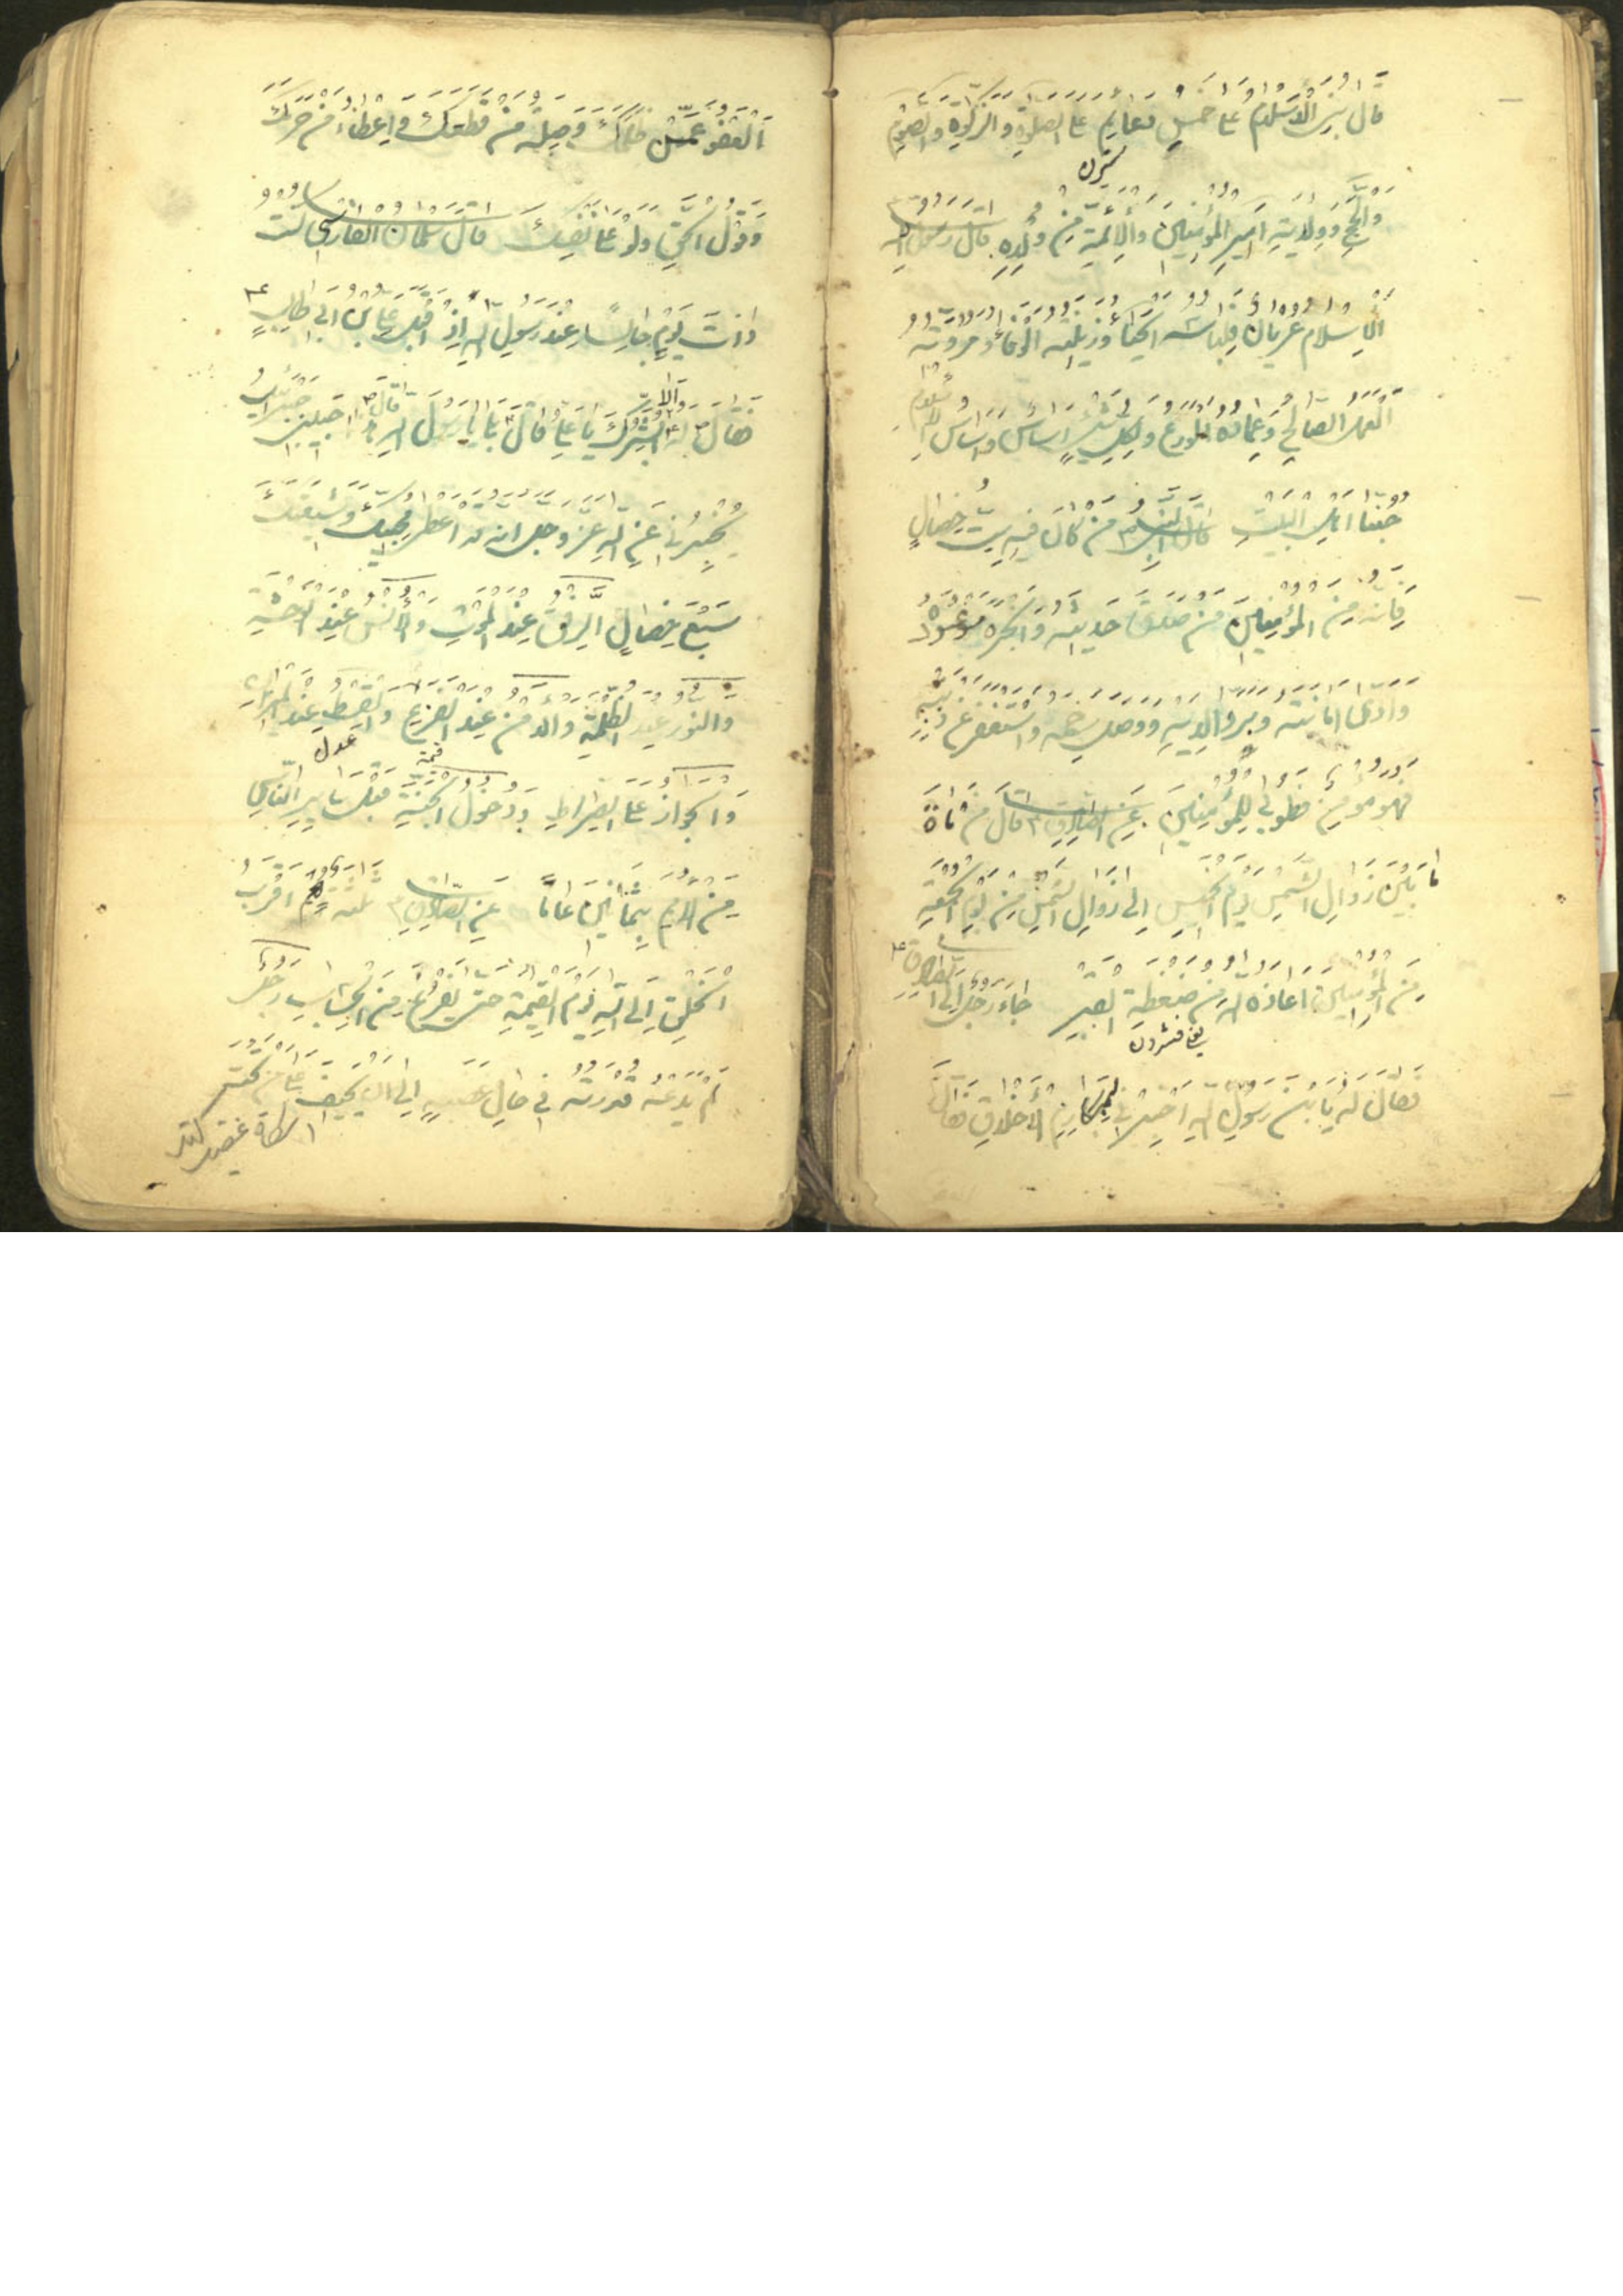 قَالَ بُنِيَ الْاِسْلَامُ عَلَى خَمْسِ دَعَائِمَ عَلَى الصَّلٰوةِ وَالزَّكٰوةِ وَالصَّوْمِ
وَالْحَجِّ وَوِلَايَةِ اَمِيرِ الْمُؤْمِنِينَ وَالْاَئِمَّةِ مِنْ وُلْدِهِ قَالَ رَسُولُ اللهِ
اَلْاِسْلَامُ عُرْيَانٌ فَلِبَاسُهُ الْحَيَاءُ وَزِينَتُهُ الْوَفَاءُ وَمُرُوَّتُهُ
الْعَمَلُ الصَّالِحُ وَعِمَادُهُ الْوَرَعُ وَلِكُلِّ شَيْءٍ اَسَاسٌ وَاَسَاسُ الْاِسْلَامِ
حُبُّنَا اَهْلَ الْبَيْتِ قَالَ مَنْ كَانَ فِيهِ سِتُّ خِصَالٍ
فَاِنَّهُ مِنَ الْمُؤْمِنِينَ مَنْ صَدَقَ حَدِيثُهُ وَاَنْجَزَ مَوْعُودَهُ
وَاَدَّى اَمَانَتَهُ وَبَرَّ وَالِدَيْهِ وَوَصَلَ رَحِمَهُ وَاسْتَغْفَرَ مِنْ ذَنْبِهِ
فَهُوَ مُؤْمِنٌ طُوبٰى لِلْمُؤْمِنِينَ عَنِ الصَّادِقِ قَالَ مَنْ مَاتَ
مَا بَيْنَ زَوَالِ الشَّمْسِ يَوْمَ الْخَمِيسِ اِلَى زَوَالِ الشَّمْسِ مِنْ يَوْمِ الْجُمُعَةِ
مِنَ الْمُؤْمِنِينَ اَعَاذَهُ اللهُ مِنْ ضَغْطَةِ الْقَبْرِ جَاءَ رَجُلٌ اِلَى الصَّادِقِ
يعنى فشردن
فَقَالَ لَهُ يَابْنَ رَسُولِ اللهِ اَخْبِرْنِى بِمَكَارِمِ الْاَخْلَاقِ فَقَالَ
اَلْعَفْوُ عَمَّنْ ظَلَمَكَ وَصِلَةُ مَنْ قَطَعَكَ وَاِعْطَاءُ مَنْ حَرَمَكَ
وَقَوْلُ الْحَقِّ وَلَوْ عَلَى نَفْسِكَ قَالَ سَلْمَانُ الْفَارْسِىُّ كُنْتُ
ذَاتَ يَوْمٍ جَالِسًا عِنْدَ رَسُولِ اللهِ اِذْ اَقْبَلَ عَلِىُّ بْنُ اَبِى طَالِبٍ
فَقَالَ لَهُ اَلَا اُبَشِّرُكَ يَا عَلِىُّ قَالَ بَلٰى يَا رَسُولَ اللهِ قَالَ حَبِيبِى جَبْرَئِيلُ
يُخْبِرُنِى عَنِ اللهِ عَزَّ وَجَلَّ اَنَّهُ قَدْ اَعْطٰى مُحِبَّكَ وَشِيعَتَكَ
سَبْعَ خِصَالٍ الرِّفْقَ عِنْدَ الْمَوْتِ وَالْاُنْسَ عِنْدَ الْوَحْشَةِ
وَالنُّورَ عِنْدَ الظُّلْمَةِ وَالْاَمْنَ عِنْدَ الْفَزَعِ وَالْقِسْطَ عِنْدَ الْمِيزَانِ
عدل
وَالْجَوَازَ عَلَى الصِّرَاطِ وَدُخُولَ الْجَنَّةِ قَبْلَ سَايِرِ النَّاسِ
مِنَ الْاُمَمِ بِثَمَانِينَ عَامًا عَنِ الصَّادِقِ ثَلٰثَةٌ هُمْ اَقْرَبُ
الْخَلْقِ اِلَى اللهِ يَوْمَ الْقِيٰمَةِ حَتّٰى يَفْرُغَ مِنَ الْحِسَابِ رَجُلٌ
لَمْ يَدْعُهُ قُدْرَتُهُ فِى حَالِ غَضَبِهِ اِلَى اَنْ يَحِيفَ عَلَى مَنْ تَحْتَ